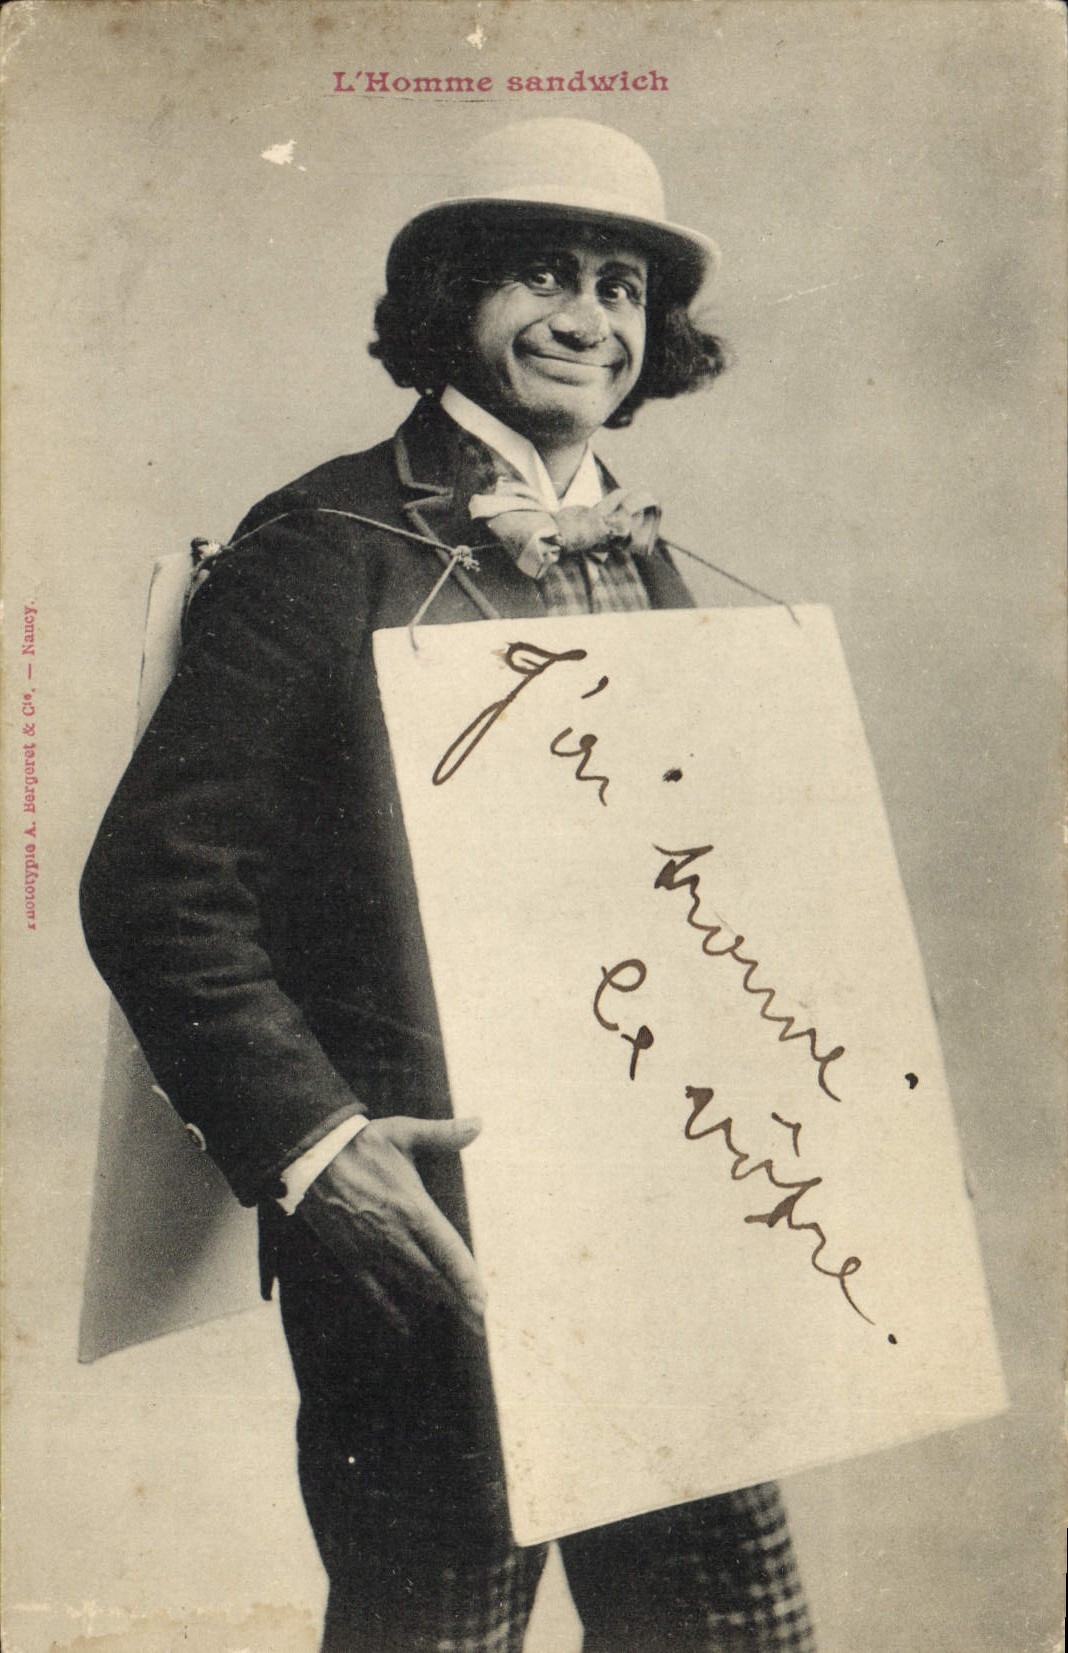 L'Homme sandwich
Phototypie A. Bergeret & Cie. — Nancy.
J'ai
trouvé
le vôtre.